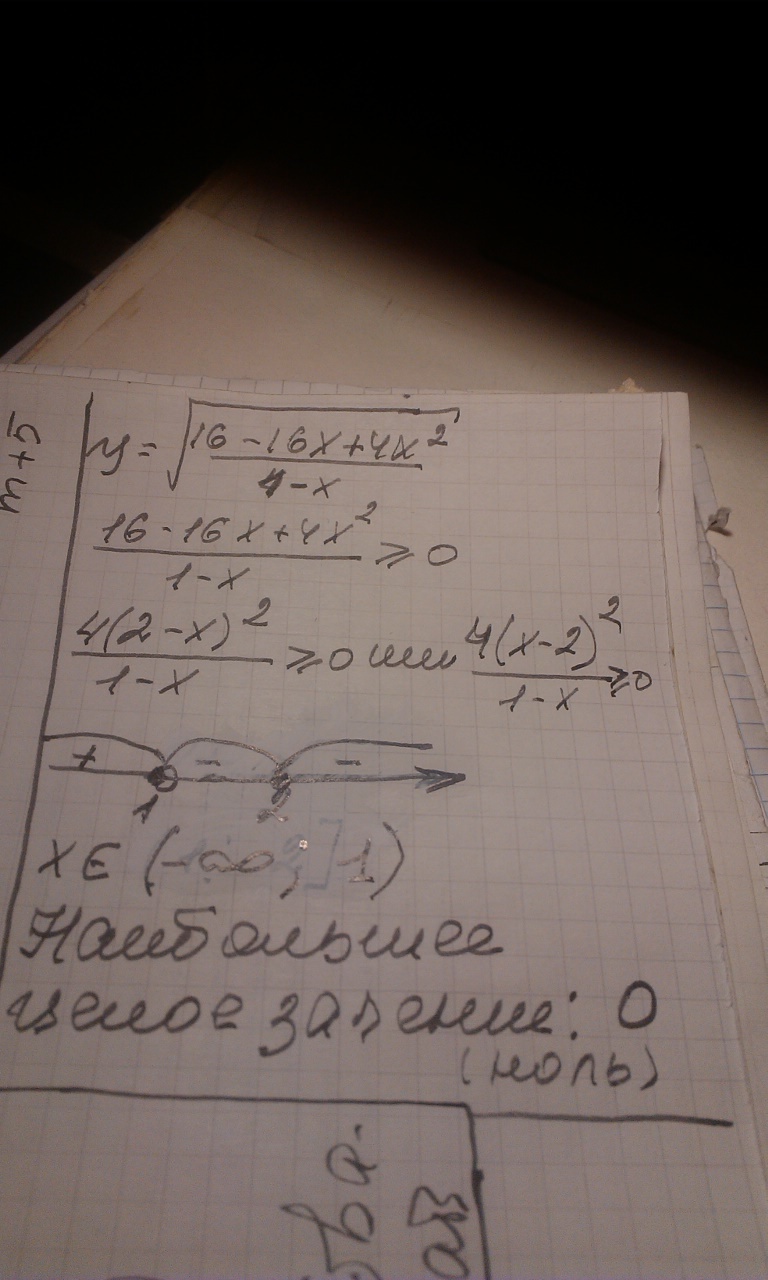 m+5
y = √((16-16x+4x²)/(1-x))
(16-16x+4x²)/(1-x) ≥ 0
(4(2-x)²)/(1-x) ≥ 0 или (4(x-2)²)/(1-x) ≥ 0
+ - -
1 2
x ∈ (-∞; 1)
Наибольшее
целое зачение: 0
(ноль)